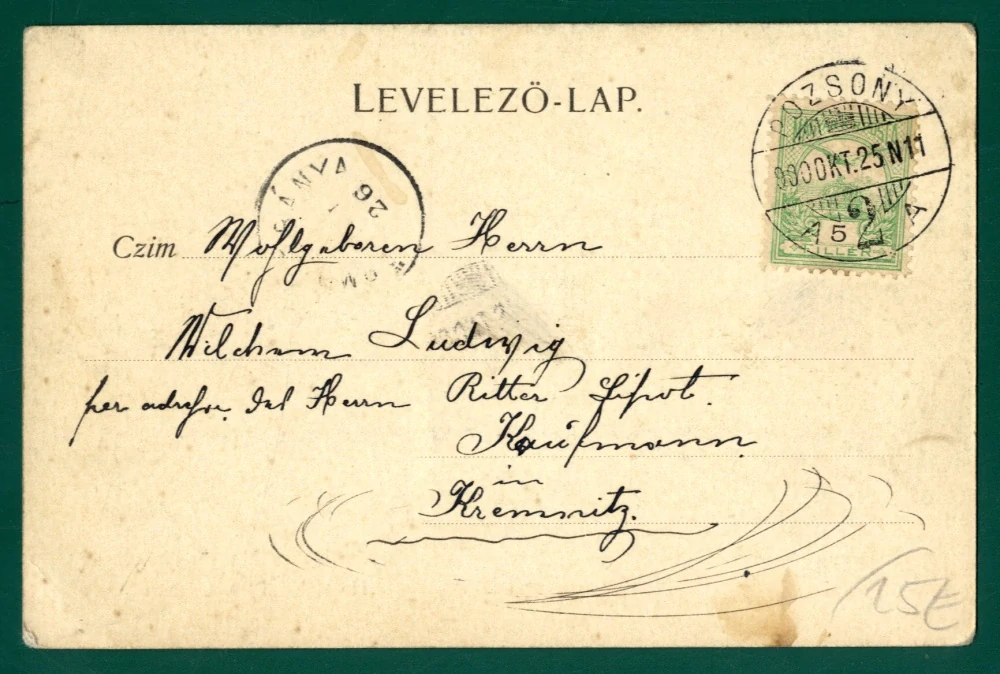 LEVELEZŐ-LAP.
POZSONY
900 OKT. 25 N 11
2 A
15
FILLÉR
BÁNYA
26
Czim Wohlgeboren Herrn
Wilchem Ludwig
per adresse des Herrn Ritter Lipot.
Kaufmann
in
Kremnitz.
15E